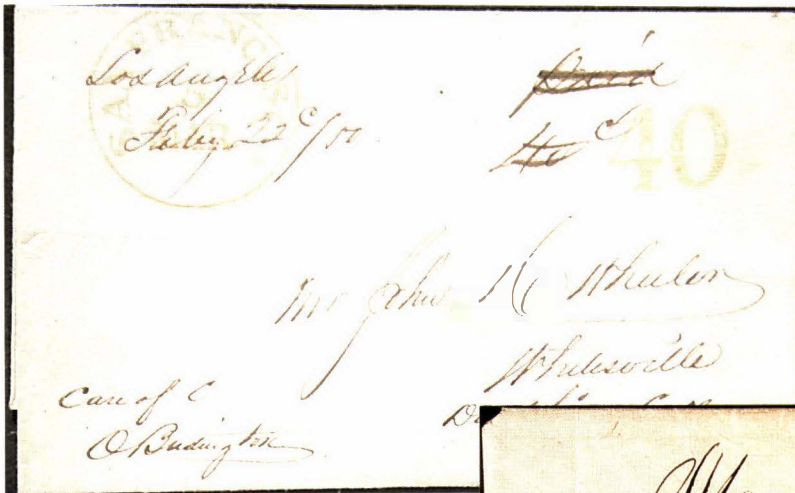 SAN FRANCISCO
Los Angeles
Feby 22
Paid
40 c
40
Mr John H Wheeler
Whitesville
Care of C
O Budington